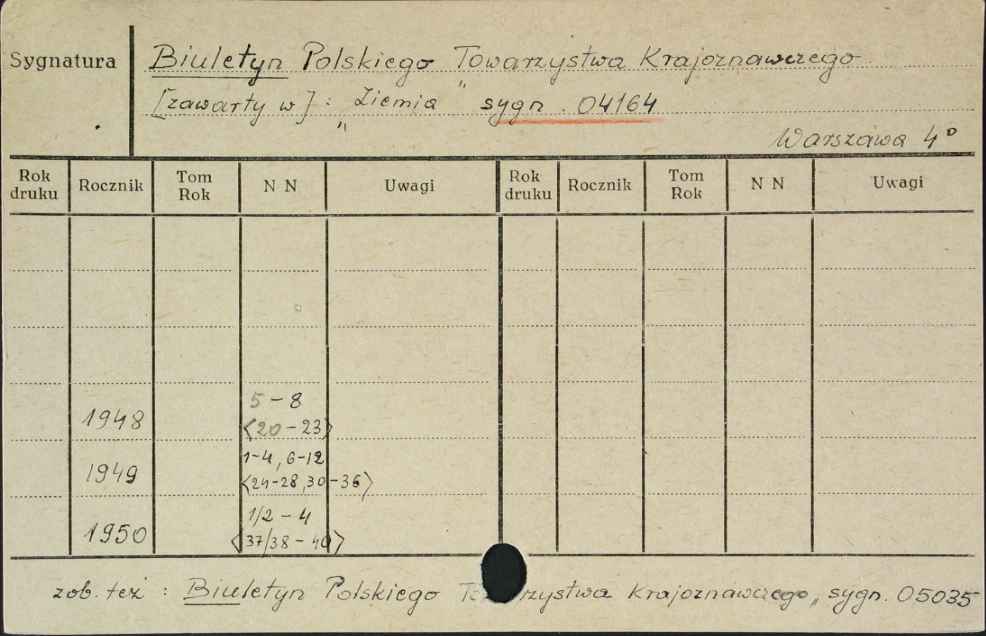 Sygnatura
Biuletyn Polskiego Towarzystwa Krajoznawczego
[zawarty w] : „Ziemia" sygn. 04164
Warszawa 4°
Rok druku Rocznik Tom Rok N N Uwagi Rok druku Rocznik Tom Rok N N Uwagi
1948 5-8
<20-23>
1949 1-4, 6-12
<24-28, 30-36>
1950 1/2-4
<37/38-40>
zob. też : Biuletyn Polskiego Krajoznawczego, sygn. 05035